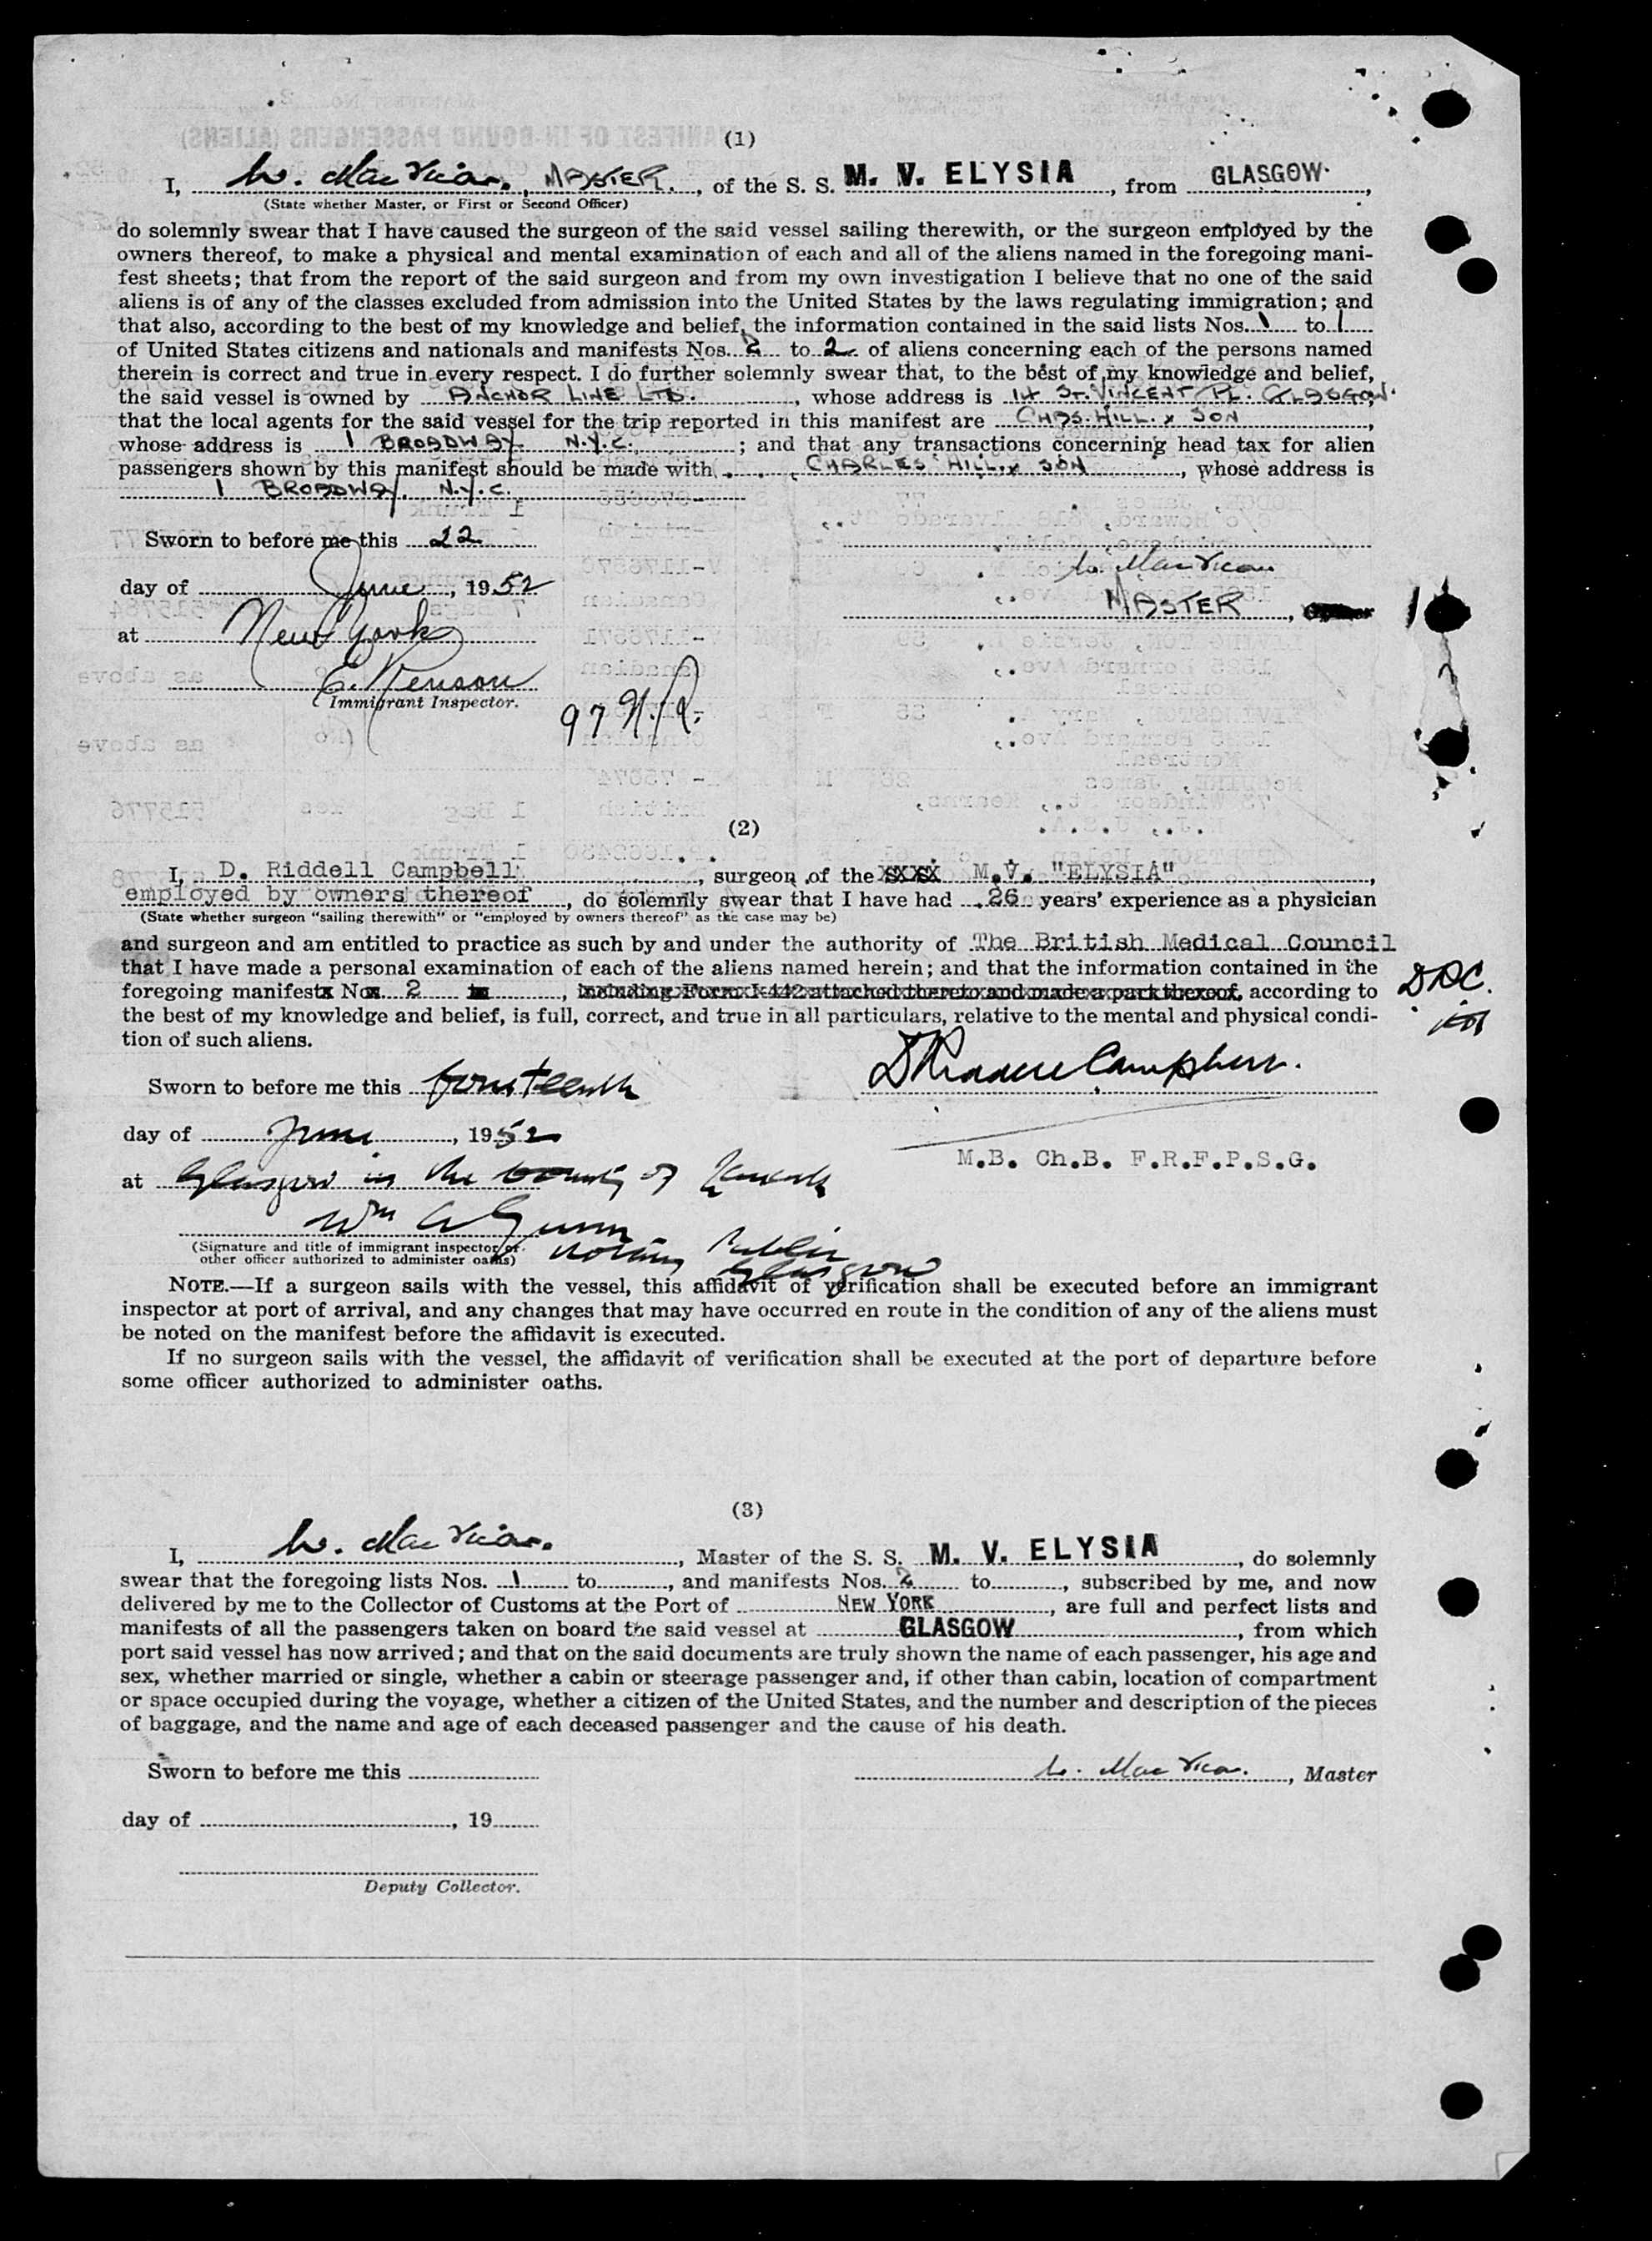 (1)
I, W. MacVicar., MASTER., of the S. S. M. V. ELYSIA, from GLASGOW.,
(State whether Master, or First or Second Officer)
do solemnly swear that I have caused the surgeon of the said vessel sailing therewith, or the surgeon employed by the
owners thereof, to make a physical and mental examination of each and all of the aliens named in the foregoing mani-
fest sheets; that from the report of the said surgeon and from my own investigation I believe that no one of the said
aliens is of any of the classes excluded from admission into the United States by the laws regulating immigration; and
that also, according to the best of my knowledge and belief, the information contained in the said lists Nos. 1 to 1
of United States citizens and nationals and manifests Nos. 2 to 2 of aliens concerning each of the persons named
therein is correct and true in every respect. I do further solemnly swear that, to the best of my knowledge and belief,
the said vessel is owned by ANCHOR LINE LTD., whose address is 14 ST. VINCENT PL. GLASGOW.
that the local agents for the said vessel for the trip reported in this manifest are CHAS. HILL. & SON,
whose address is 1 BROADWAY N.Y.C.; and that any transactions concerning head tax for alien
passengers shown by this manifest should be made with CHARLES HILL. & SON, whose address is
1 BROADWAY. N.Y.C.
Sworn to before me this 22
day of June, 1952
W. MacVicar
MASTER,
at New York
Immigrant Inspector.
97 N.R.
(2)
I, D. Riddell Campbell, surgeon of the M.V. "ELYSIA",
employed by owners thereof, do solemnly swear that I have had 26 years' experience as a physician
(State whether surgeon "sailing therewith" or "employed by owners thereof" as the case may be)
and surgeon and am entitled to practice as such by and under the authority of The British Medical Council
that I have made a personal examination of each of the aliens named herein; and that the information contained in the
foregoing manifest No. 2, including Form I-442 attached thereto and made a part thereof, according to
DRC.
the best of my knowledge and belief, is full, correct, and true in all particulars, relative to the mental and physical condi-
tion of such aliens.
Sworn to before me this fourteenth
D Riddell Campbell.
day of June, 1952
M.B. Ch.B. F.R.F.P.S.G.
at Glasgow in the County of Lanark
Wm A Gunn
(Signature and title of immigrant inspector or
other officer authorized to administer oaths)
Notary Public
Glasgow
NOTE.—If a surgeon sails with the vessel, this affidavit of verification shall be executed before an immigrant
inspector at port of arrival, and any changes that may have occurred en route in the condition of any of the aliens must
be noted on the manifest before the affidavit is executed.
If no surgeon sails with the vessel, the affidavit of verification shall be executed at the port of departure before
some officer authorized to administer oaths.
(3)
I, W. MacVicar., Master of the S. S. M. V. ELYSIA, do solemnly
swear that the foregoing lists Nos. 1 to, and manifests Nos. 2 to, subscribed by me, and now
delivered by me to the Collector of Customs at the Port of NEW YORK, are full and perfect lists and
manifests of all the passengers taken on board the said vessel at GLASGOW, from which
port said vessel has now arrived; and that on the said documents are truly shown the name of each passenger, his age and
sex, whether married or single, whether a cabin or steerage passenger and, if other than cabin, location of compartment
or space occupied during the voyage, whether a citizen of the United States, and the number and description of the pieces
of baggage, and the name and age of each deceased passenger and the cause of his death.
Sworn to before me this
W. MacVicar., Master
day of, 19
Deputy Collector.